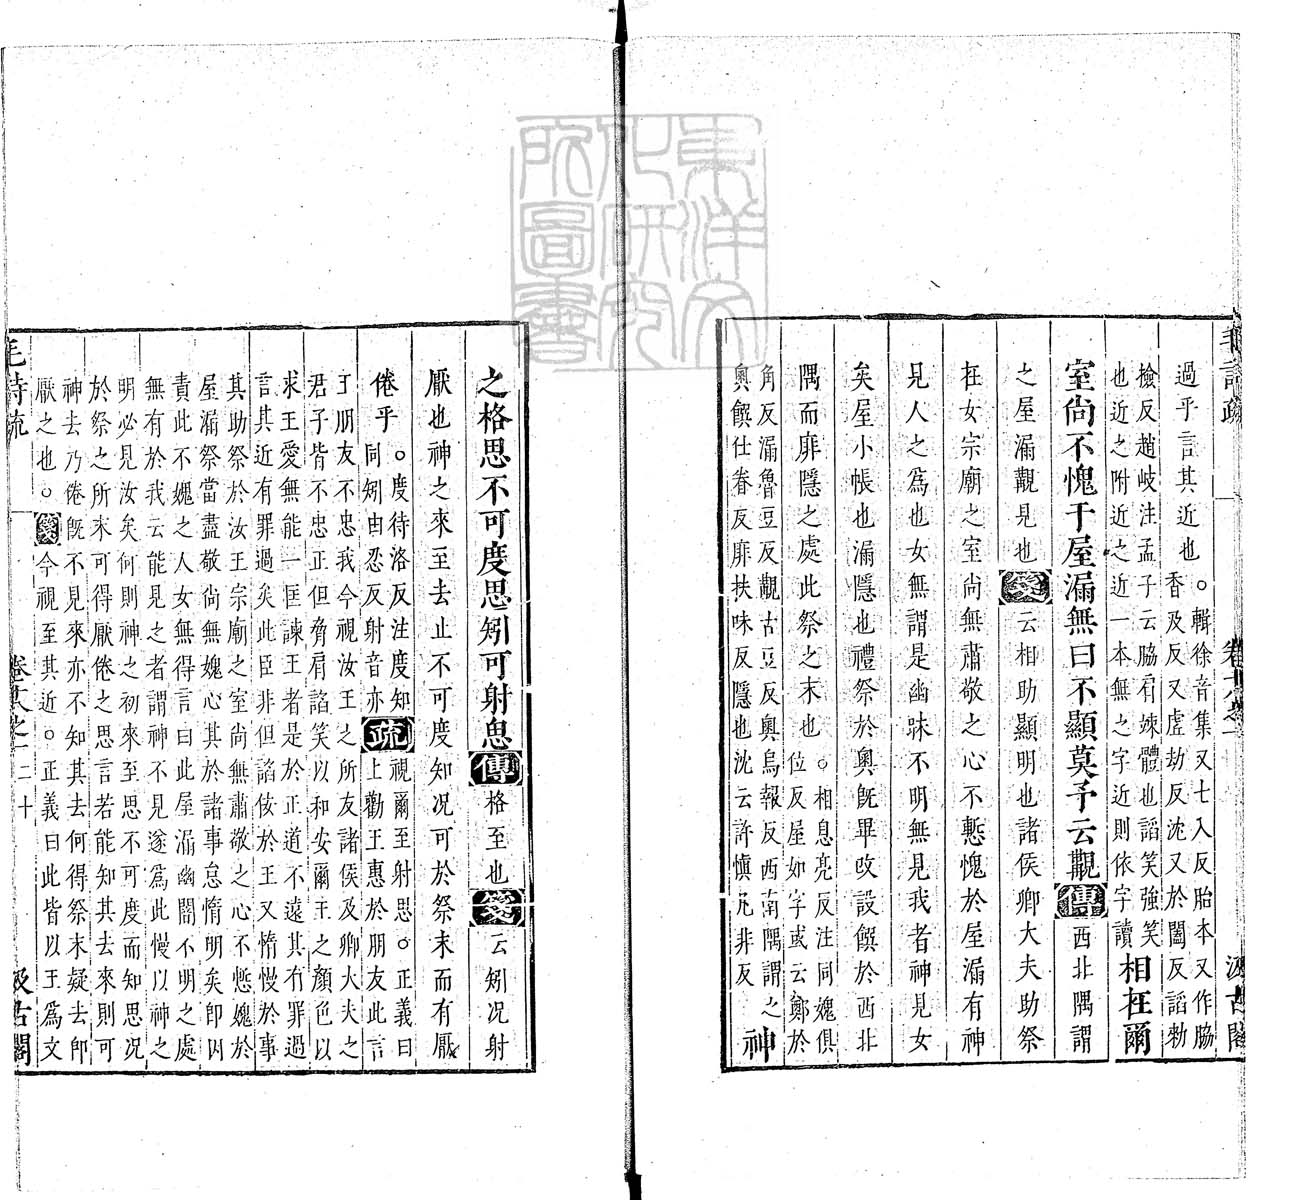 毛詩疏 卷十八之一 汲古閣
過乎言其近也。輯徐音集又七入反胎本又作脇
香及反又虛劫反沈又於闔反諂勑
檢反趙岐注孟子云脇肩竦體也諂笑強笑
也近之附近之近一本無之字近則依字讀
相在爾
室尚不愧于屋漏無曰不顯莫予云觀傳西北隅謂
之屋漏觀見也箋云相助顯明也諸侯卿大夫助祭
在女宗廟之室尚無肅敬之心不慙愧於屋漏有神
見人之爲也女無謂是幽昧不明無見我者神見女
矣屋小帳也漏隱也禮祭於奧旣畢改設饌於西北
隅而厞隱之處此祭之末也。相息亮反注同媿俱
位反屋如字或云鄭於
角反漏魯豆反觀古豆反奧烏報反西南隅謂之
奧饌仕眷反厞扶味反隱也沈云許慎凡非反
神
之格思不可度思矧可射思傳格至也箋云矧况射
厭也神之來至去止不可度知况可於祭末而有厭
倦乎。度待洛反注度知
同矧由忍反射音亦
疏視爾至射思。正義曰
上勸王惠於朋友此言
王朋友不忠我今視汝王之所友諸侯及卿大夫之
君子皆不忠正但脅肩諂笑以和安爾王之顏色以
求王愛無能一匡諫王者是於正道不遠其有罪過
言其近有罪過矣此臣非但諂佞於王又惰慢於事
其助祭於汝王宗廟之室尚無肅敬之心不慙媿於
屋漏祭當盡敬尚無媿心其於諸事怠惰明矣卽因
責此不媿之人女無得言曰此屋漏幽闇不明之處
無有於我云能見之者謂神不見遂爲此慢以神之
明必見汝矣何則神之初來至思不可度而知思况
於祭之所末可得厭倦之思言若能知其去來則可
神去乃倦旣不見來亦不知其去何得祭末疑去卽
厭之也。箋今視至其近。正義曰此皆以王爲文
毛詩疏 卷十八之一 二十 汲古閣
東洋文化研究所圖書